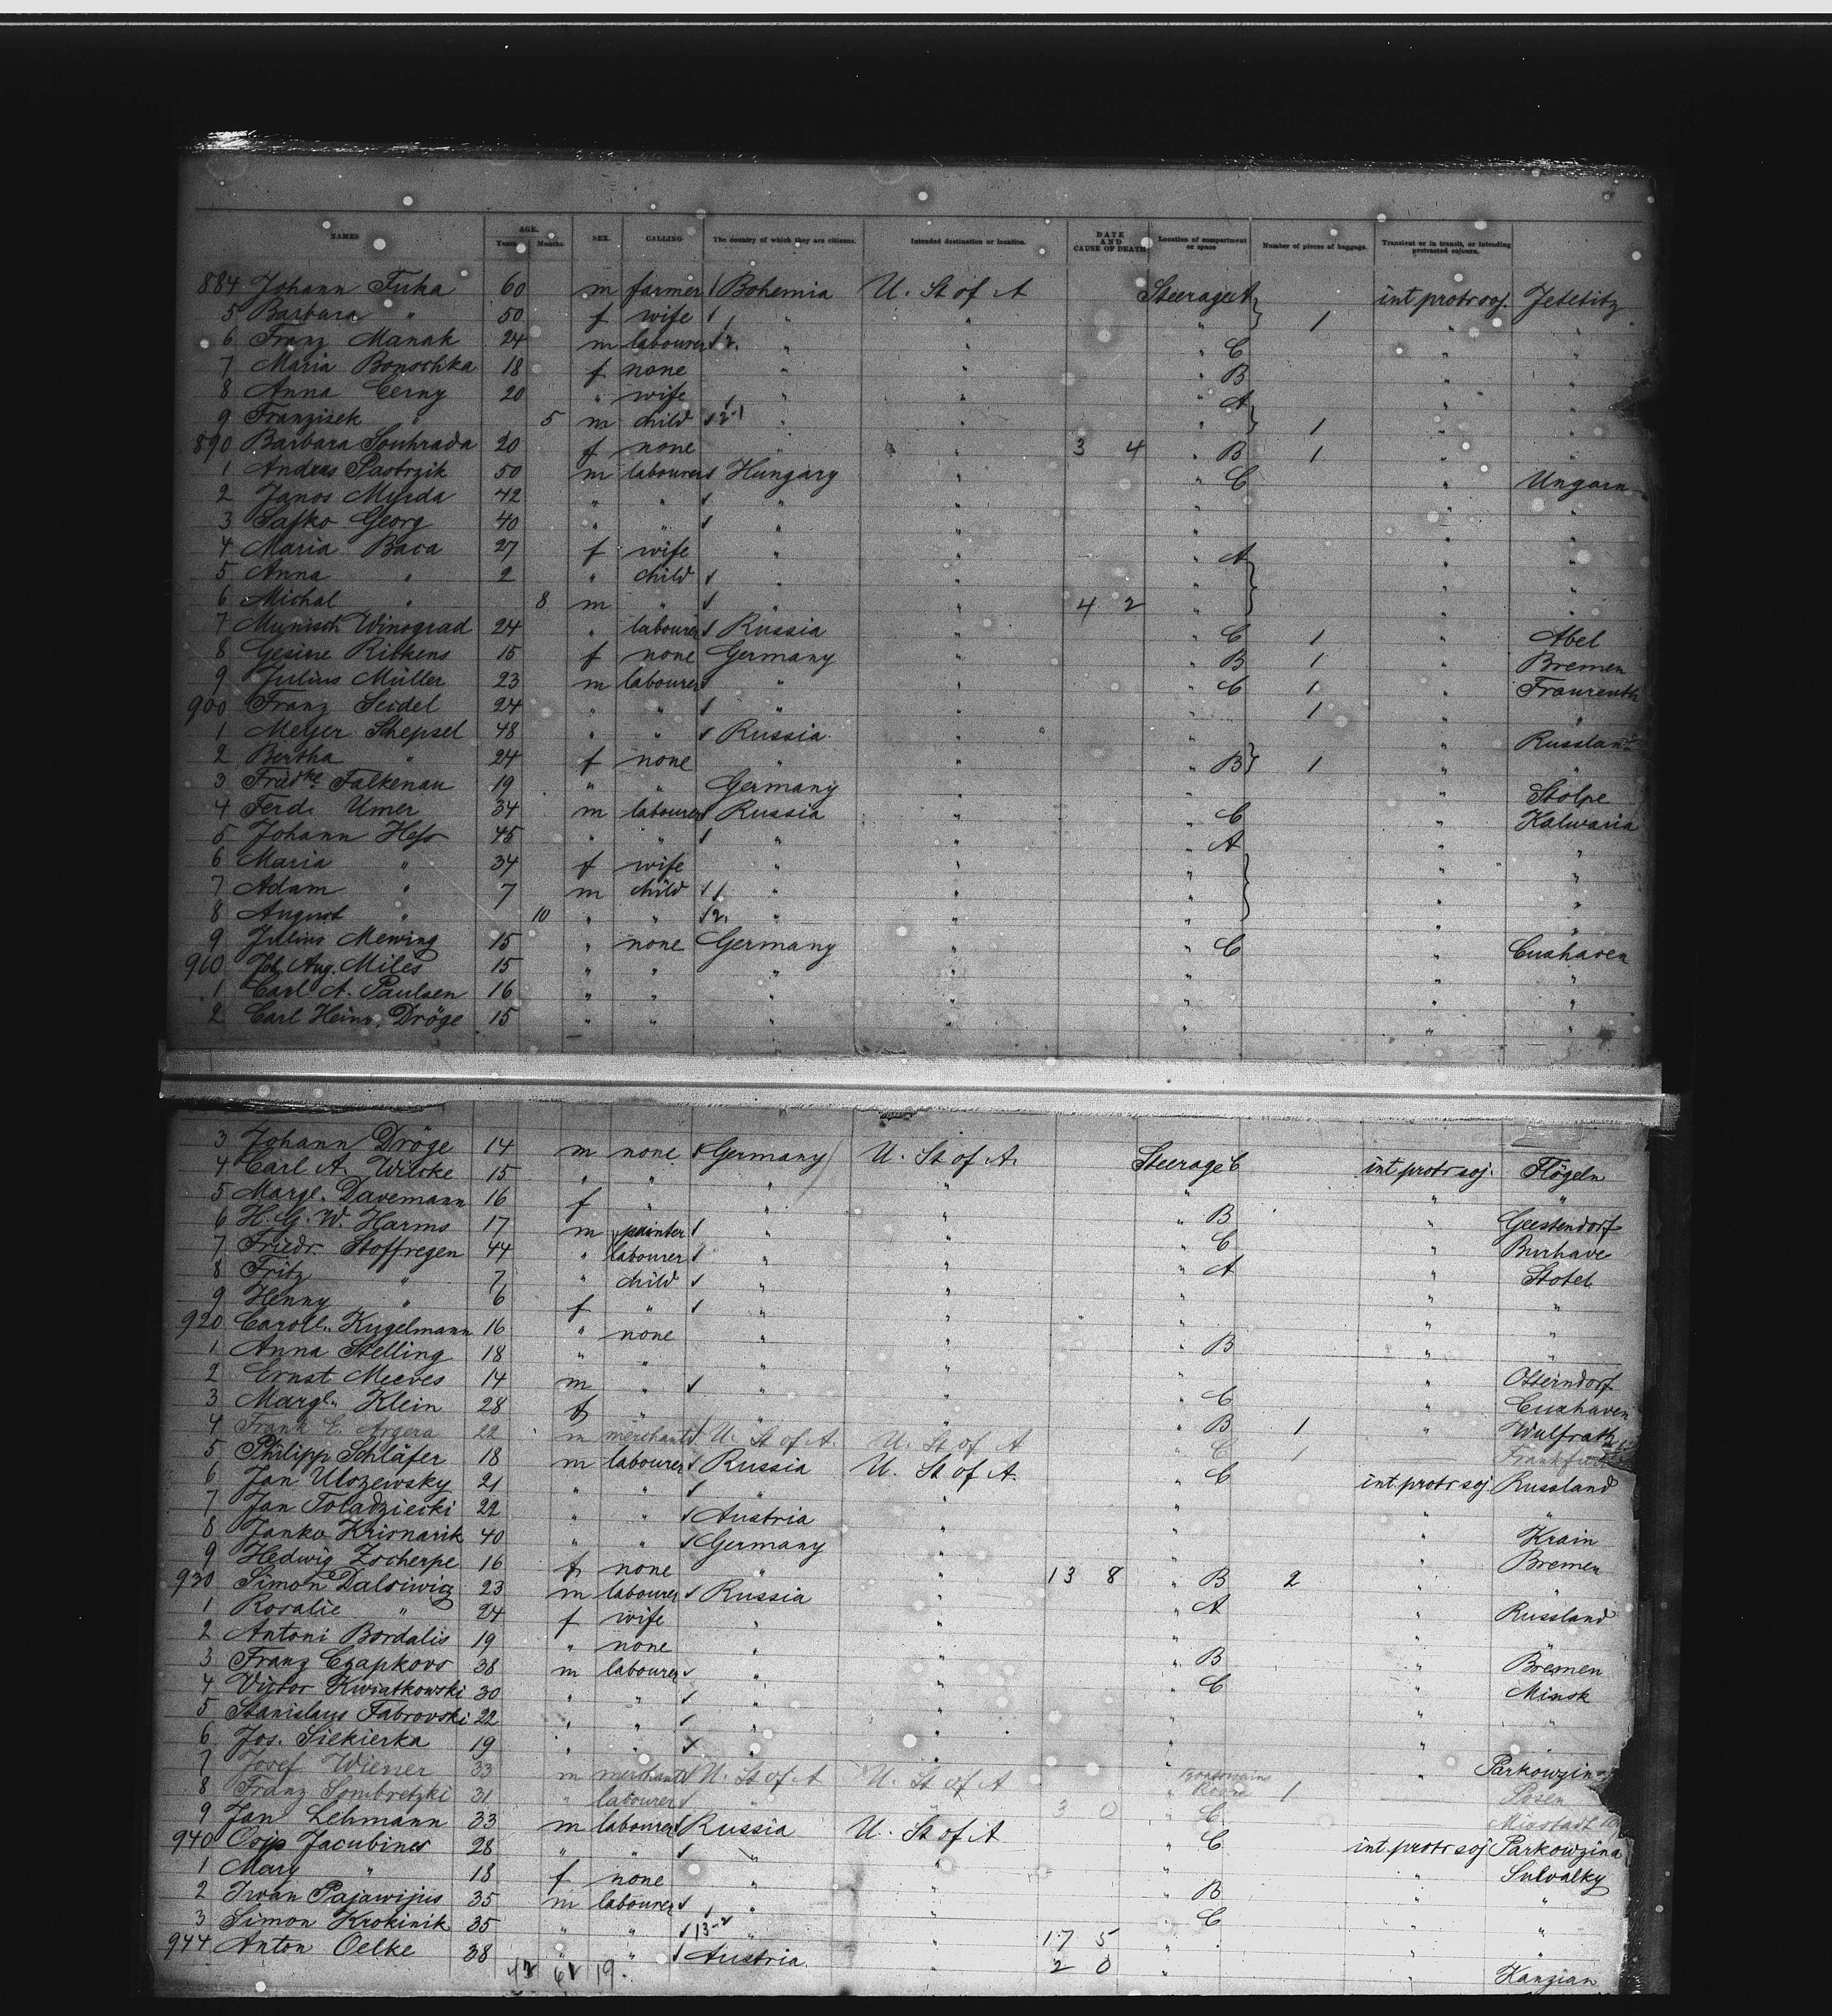 NAMES AGE. Years. Months. SEX. CALLING The country of which they are citizens. Intended destination or location. DATE AND CAUSE OF DEATH Location of compartment or space Number of pieces of baggage. Transient or in transit, or intending protracted sojourn.
884 Johann Fuka 60 m farmer Bohemia U. St of A Steerage A int protr soj. Jetetitz
5 Barbara " 50 f wife " " " 1 " "
6 Franz Manak 24 m labourer " " " C " "
7 Maria Bonoschka 18 f none " " " B " "
8 Anna Cerny 20 " wife " " " A " "
9 Franzisek " 5 m child " " " 1 " "
890 Barbara Souhrada 20 f none " " 3 4 " B 1 " "
1 Andras Pastrzik 50 m labourer Hungary " " C " Ungarn
2 Janos Myrda 42 " " " " " " "
3 Safko Georg 40 " " " " " " "
4 Maria Baca 27 f wife " " " A " "
5 Anna " 2 " child " " " " "
6 Michal " 8 m " " " 4 2 " " "
7 Munisch Winograd 24 " labourer Russia " " C 1 " Abel
8 Gesine Ribkens 15 f none Germany " " B 1 " Bremen
9 Julius Müller 23 m labourer " " " C 1 " Fraureuth
900 Franz Seidel 24 " " " " " 1 " "
1 Meyer Shepsel 48 " " Russia " " " Russland
2 Bertha " 24 f none " " " B 1 " "
3 Friedke Falkenau 19 " " Germany " " " Stolpe
4 Ferd. Umer 34 m labourer Russia " " C " Kalwaria
5 Johann Hess 45 " " " " " A " "
6 Maria " 34 f wife " " " " "
7 Adam " 7 m child " " " " "
8 August " 10 " " " " " " "
9 Julius Mewing 15 " none Germany " " C " Cuxhaven
910 Joh. Aug. Miles 15 " " " " " " "
1 Carl A. Paulsen 16 " " " " " " "
2 Carl Heinr. Dröge 15 " " " " " " "
3 Johann Dröge 14 m none Germany U. St of A. Steerage C int protr soj. Flögeln
4 Carl A. Wilcke 15 " " " " " " "
5 Margt. Davemann 16 f " " " " B " Geestendorf
6 H. G. W. Harms 17 m painter " " " C " Burhave
7 Friedr. Stoffregen 44 " labourer " " " A " Stotel
8 Fritz " 7 " child " " " " "
9 Henny " 6 f " " " " " "
920 Carole. Kugelmann 16 " none " " " B " "
1 Anna Stelling 18 " " " " " " Otterndorf
2 Ernst Meeves 14 m " " " " C " Cuxhaven
3 Margt. Klein 28 f " " " " B 1 " Wülfrath
4 Frank E. Argera 22 m merchant U. St of A. U. St of A " C 1
5 Philipp Schläfer 18 m labourer Russia U. St of A. " C int. protr soj. Russland
6 Jan Ulozewsky 21 " " " " " " "
7 Jan Toladziecki 22 " " Austria " " " Krain
8 Janko Krisnarik 40 " " Germany " " " Bremen
9 Hedwig Zscherpe 16 f none " " 13 8 " B 2 " "
930 Simon Dalsiwicz 23 m labourer Russia " " A " Russland
1 Rosalie " 24 f wife " " " " "
2 Antoni Bordalis 19 " none " " " B " Bremen
3 Franz Czapkovs 38 m labourer " " " C " Minsk
4 Victor Kwiatkowski 30 " " " " " " "
5 Stanislaus Fabrovski 22 " " " " " "
6 Jos. Siekierka 19 " " " " " " Parkowzina
7 Josef Wiener 33 m merchant U. St of A U. St of A " 1 Posen
8 Franz Sombretzki 31 " labourer " " 3 0 " C
9 Jan Lehmann 33 m labourer Russia U. St of A " C int protr soj Parkowzina
940 Osip Jacubines 28 " " " " " " Suwalky
1 Mary " 18 f none " " " B " "
2 Iwan Pajawijus 35 m labourer " " " C " "
3 Simon Krokinik 35 " " 13-2 " " 17 5 " " "
944 Anton Oelke 38 " " Austria " 2 0 " " Kanzian